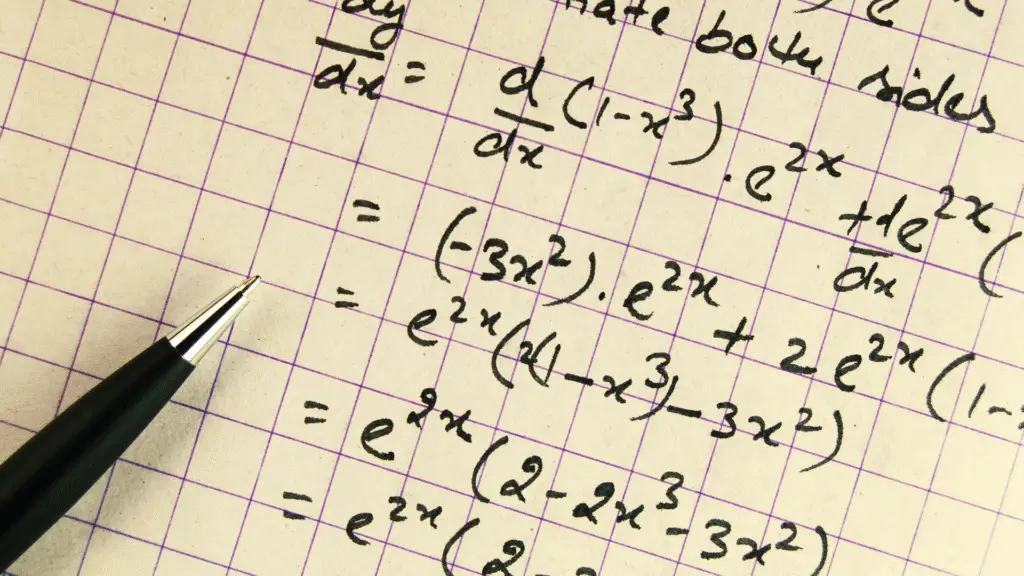 both sides
dy/dx = d/dx (1-x³) . e^2x + d/dx e^2x (
= (-3x²) . e^2x + 2e^2x (1-
= e^2x (2(1-x³) - 3x²)
= e^2x (2 - 2x³ - 3x²)
= e^2x (2 -